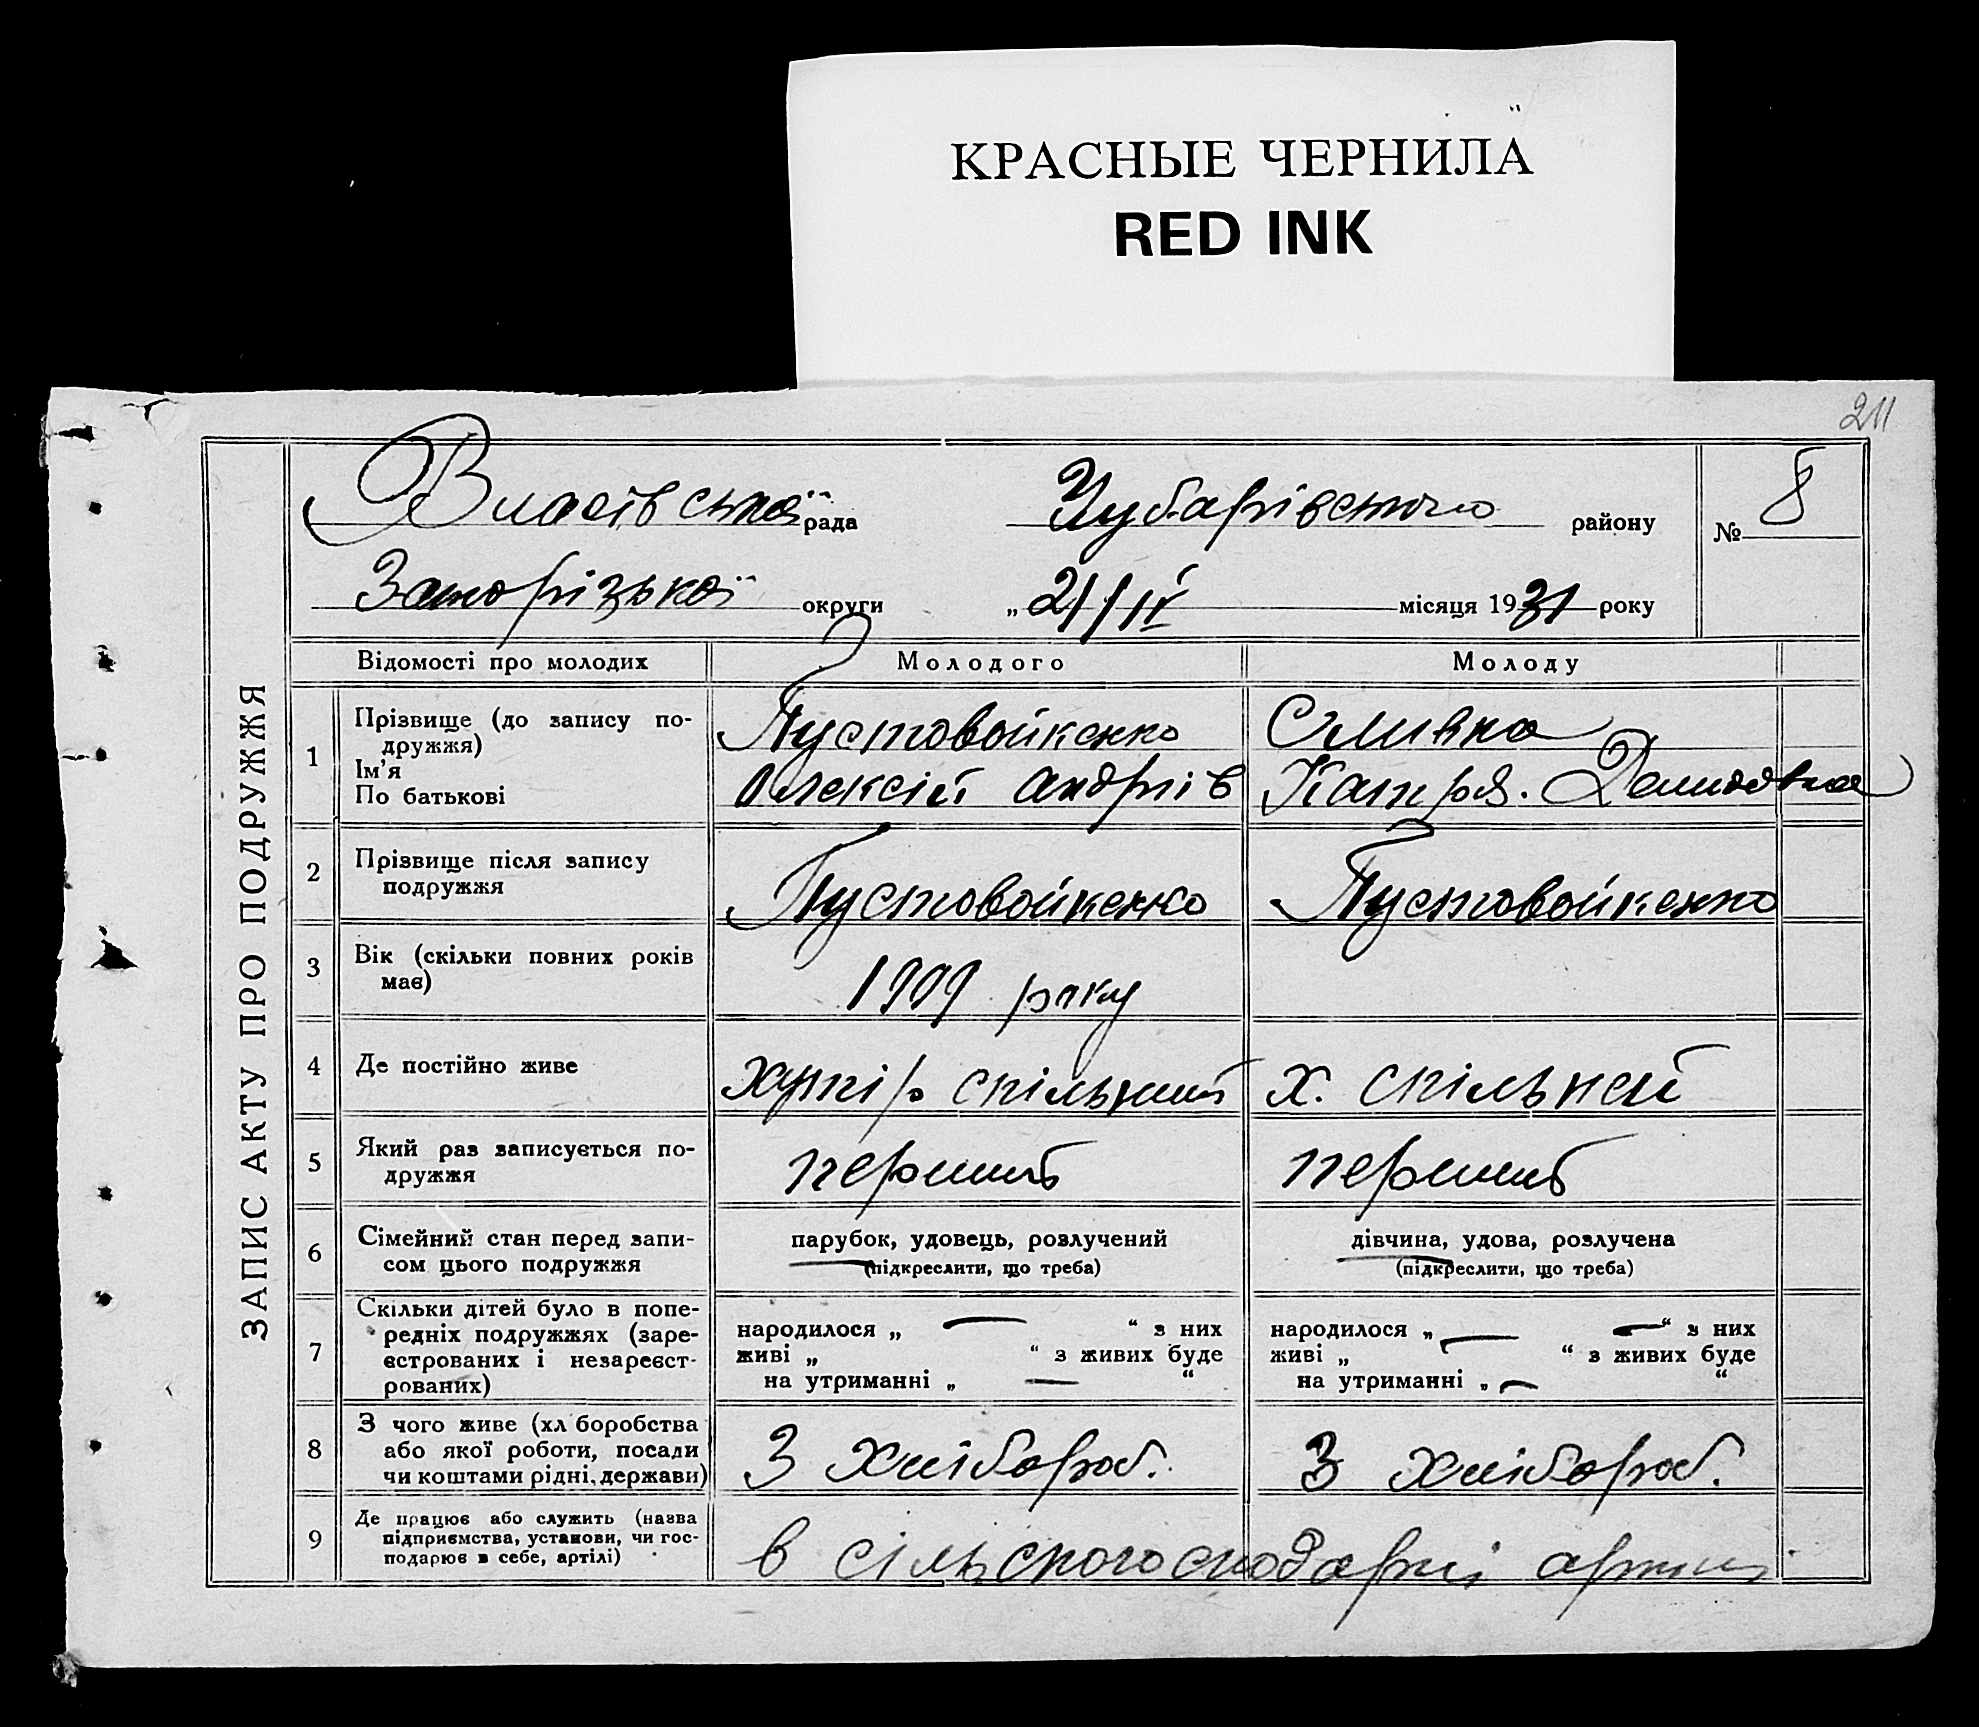 КРАСНЫЕ ЧЕРНИЛА
RED INK
211
ЗАПИС АКТУ ПРО ПОДРУЖЖЯ
Власівської рада Чубарівського району № 8
Запорізької округи „21/IV місяця 1931 року
Відомості про молодих Молодого Молоду
1 Прізвище (до запису по-
дружжя)
Ім’я
По батькові
Пустовойкенко
Олексій Андріїв
Сливка
Катря. Демидовна
2 Прізвище після запису
подружжя
Пустовойкенко Пустовойкенко
3 Вік (скільки повних років
має)
1909 року
4 Де постійно живе хутір спільний х. спільней
5 Який раз записується по-
дружжя
перший перший
6 Сімейний стан перед запи-
сом цього подружжя
парубок, удовець, розлучений
(підкреслити, що треба)
дівчина, удова, розлучена
(підкреслити, що треба)
7 Скільки дітей було в попе-
редніх подружжях (заре-
єстрованих і незареєст-
рованих)
народилося „ — “ з них
живі „ “ з живих буде
на утриманні „ — “
народилося „ — — “ з них
живі „ “ з живих буде
на утриманні „ — “
8 З чого живе (хл боробства
або якої роботи, посади
чи коштами рідні, держави)
З хлібороб. З хлібороб.
9 Де працює або служить (назва
підприємства, установи, чи гос-
подарює в себе, артілі)
в сільскогосподаркі